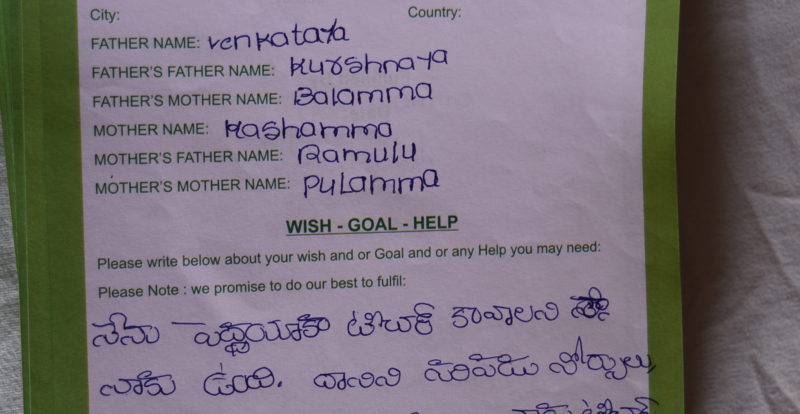 City: Country:
FATHER NAME: Venkataya
FATHER'S FATHER NAME: Kurshnaya
FATHER'S MOTHER NAME: Balamma
MOTHER NAME: Kashamma
MOTHER'S FATHER NAME: Ramulu
MOTHER'S MOTHER NAME: Pulamma
WISH - GOAL - HELP
Please write below about your wish and or Goal and or any Help you may need:
Please Note : we promise to do our best to fulfil:
నేను పెద్దయ్యాక టీచర్ కావాలని
నాకు ఉంది. దానికి సరిపడు